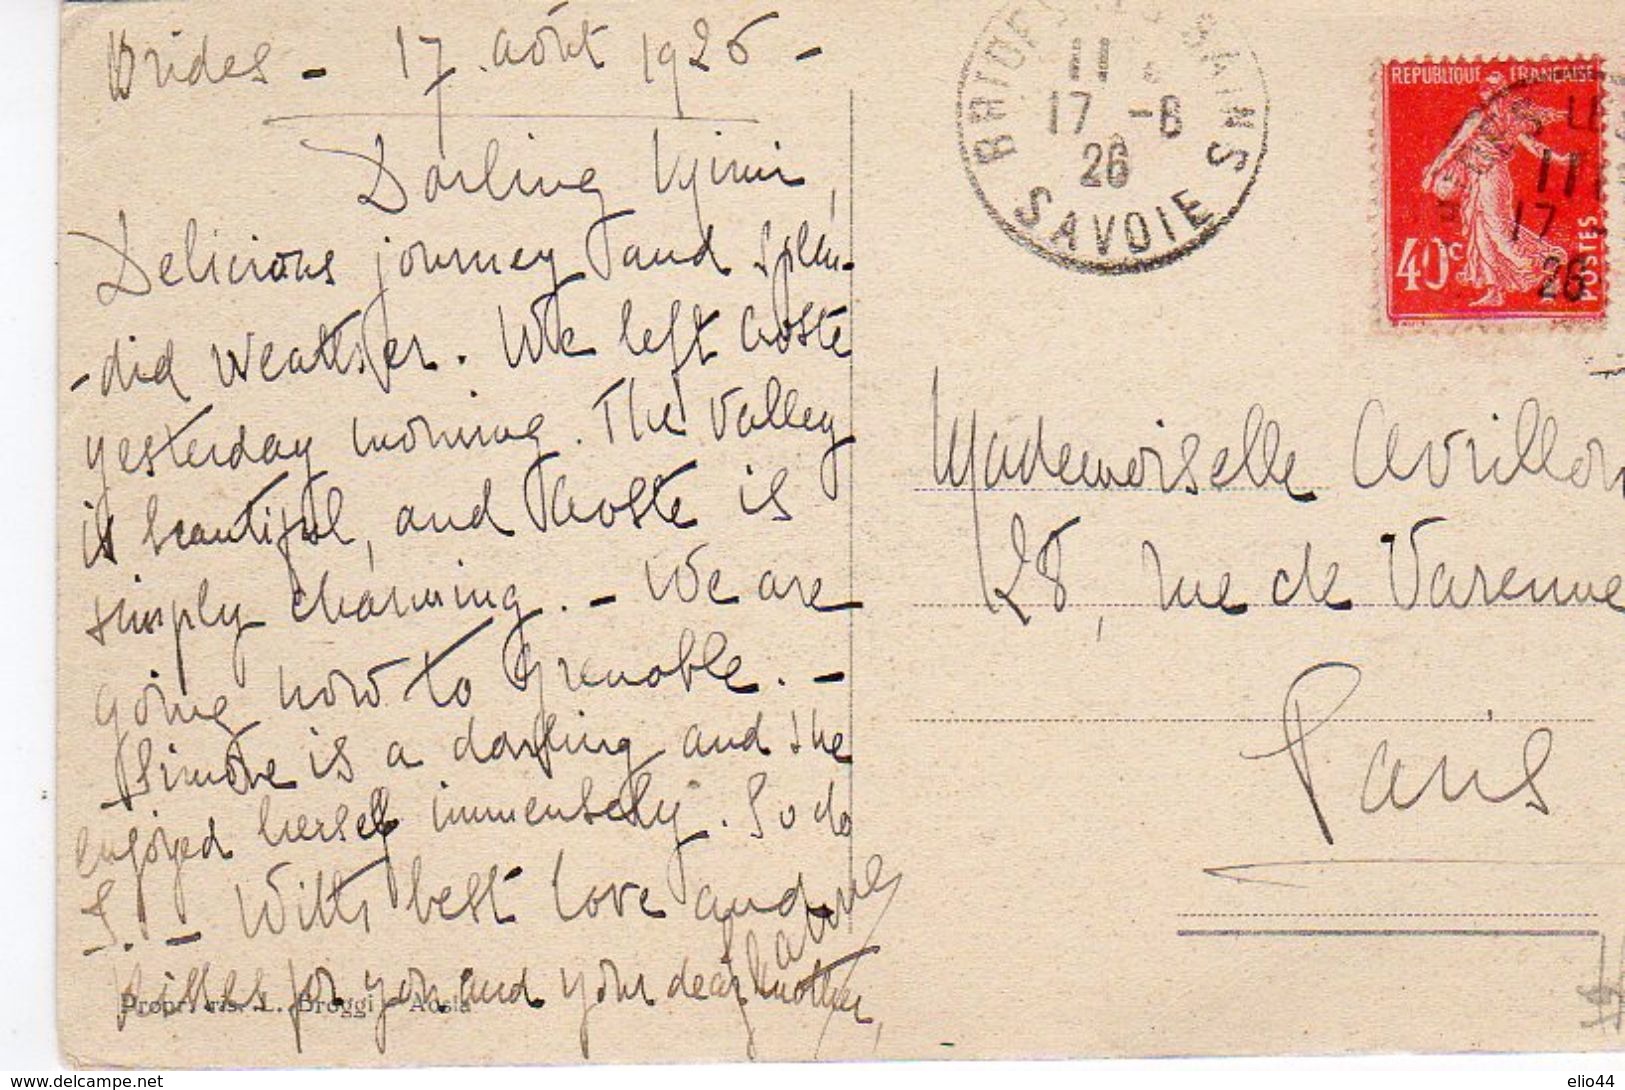 Brides - 17 août 1926 -
Darling
Delicious journey and splen-
-did weather. We left Aoste
yesterday morning. The Valley
is beautiful, and Aoste is
simply charming. - We are
going now to Grenoble. -
Simone is a darling and she
enjoyed herself immensely. So do
I. - With best love and
kisses for you and your dear mother,
Propr. ris. L. Broggi - Aosta
BRIDES
17 -8
26
SAVOIE
REPUBLIQUE FRANÇAISE
40c
POSTES
17
26
Mademoiselle Avrillon
28, rue de Varenne
Paris
elio44